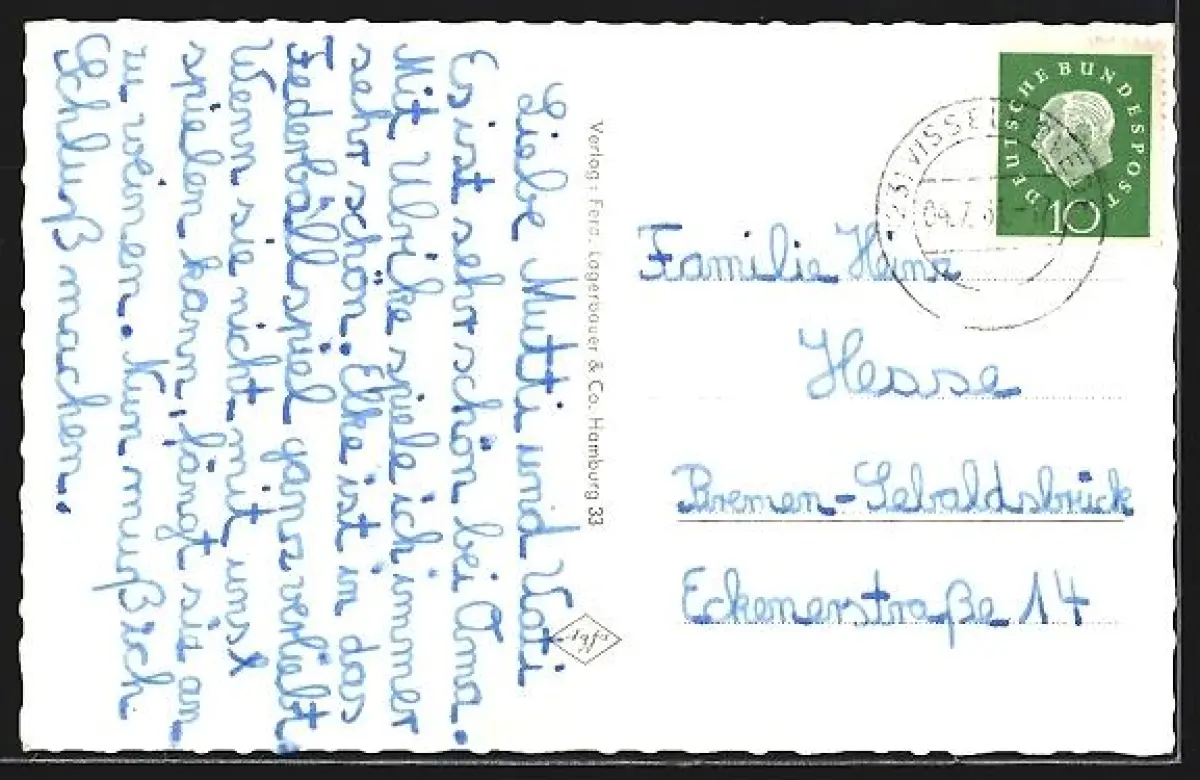 Liebe Mutti und Vati
Es ist sehr schön bei Oma.
Mit Ulrike spiele ich immer
sehr schön. Elke ist in das
Federballspiel ganz verliebt.
Wenn sie nicht mit uns
spielen kann, fängt sie an
zu weinen. Nun muß ich
Schluß machen.
Verlag: Ferd. Lagerbauer & Co. Hamburg 33
DEUTSCHE BUNDESPOST
10
VISSEL
Familie Heinz
Hesse
Bremen-Sebaldsbrück
Eckenerstraße 14